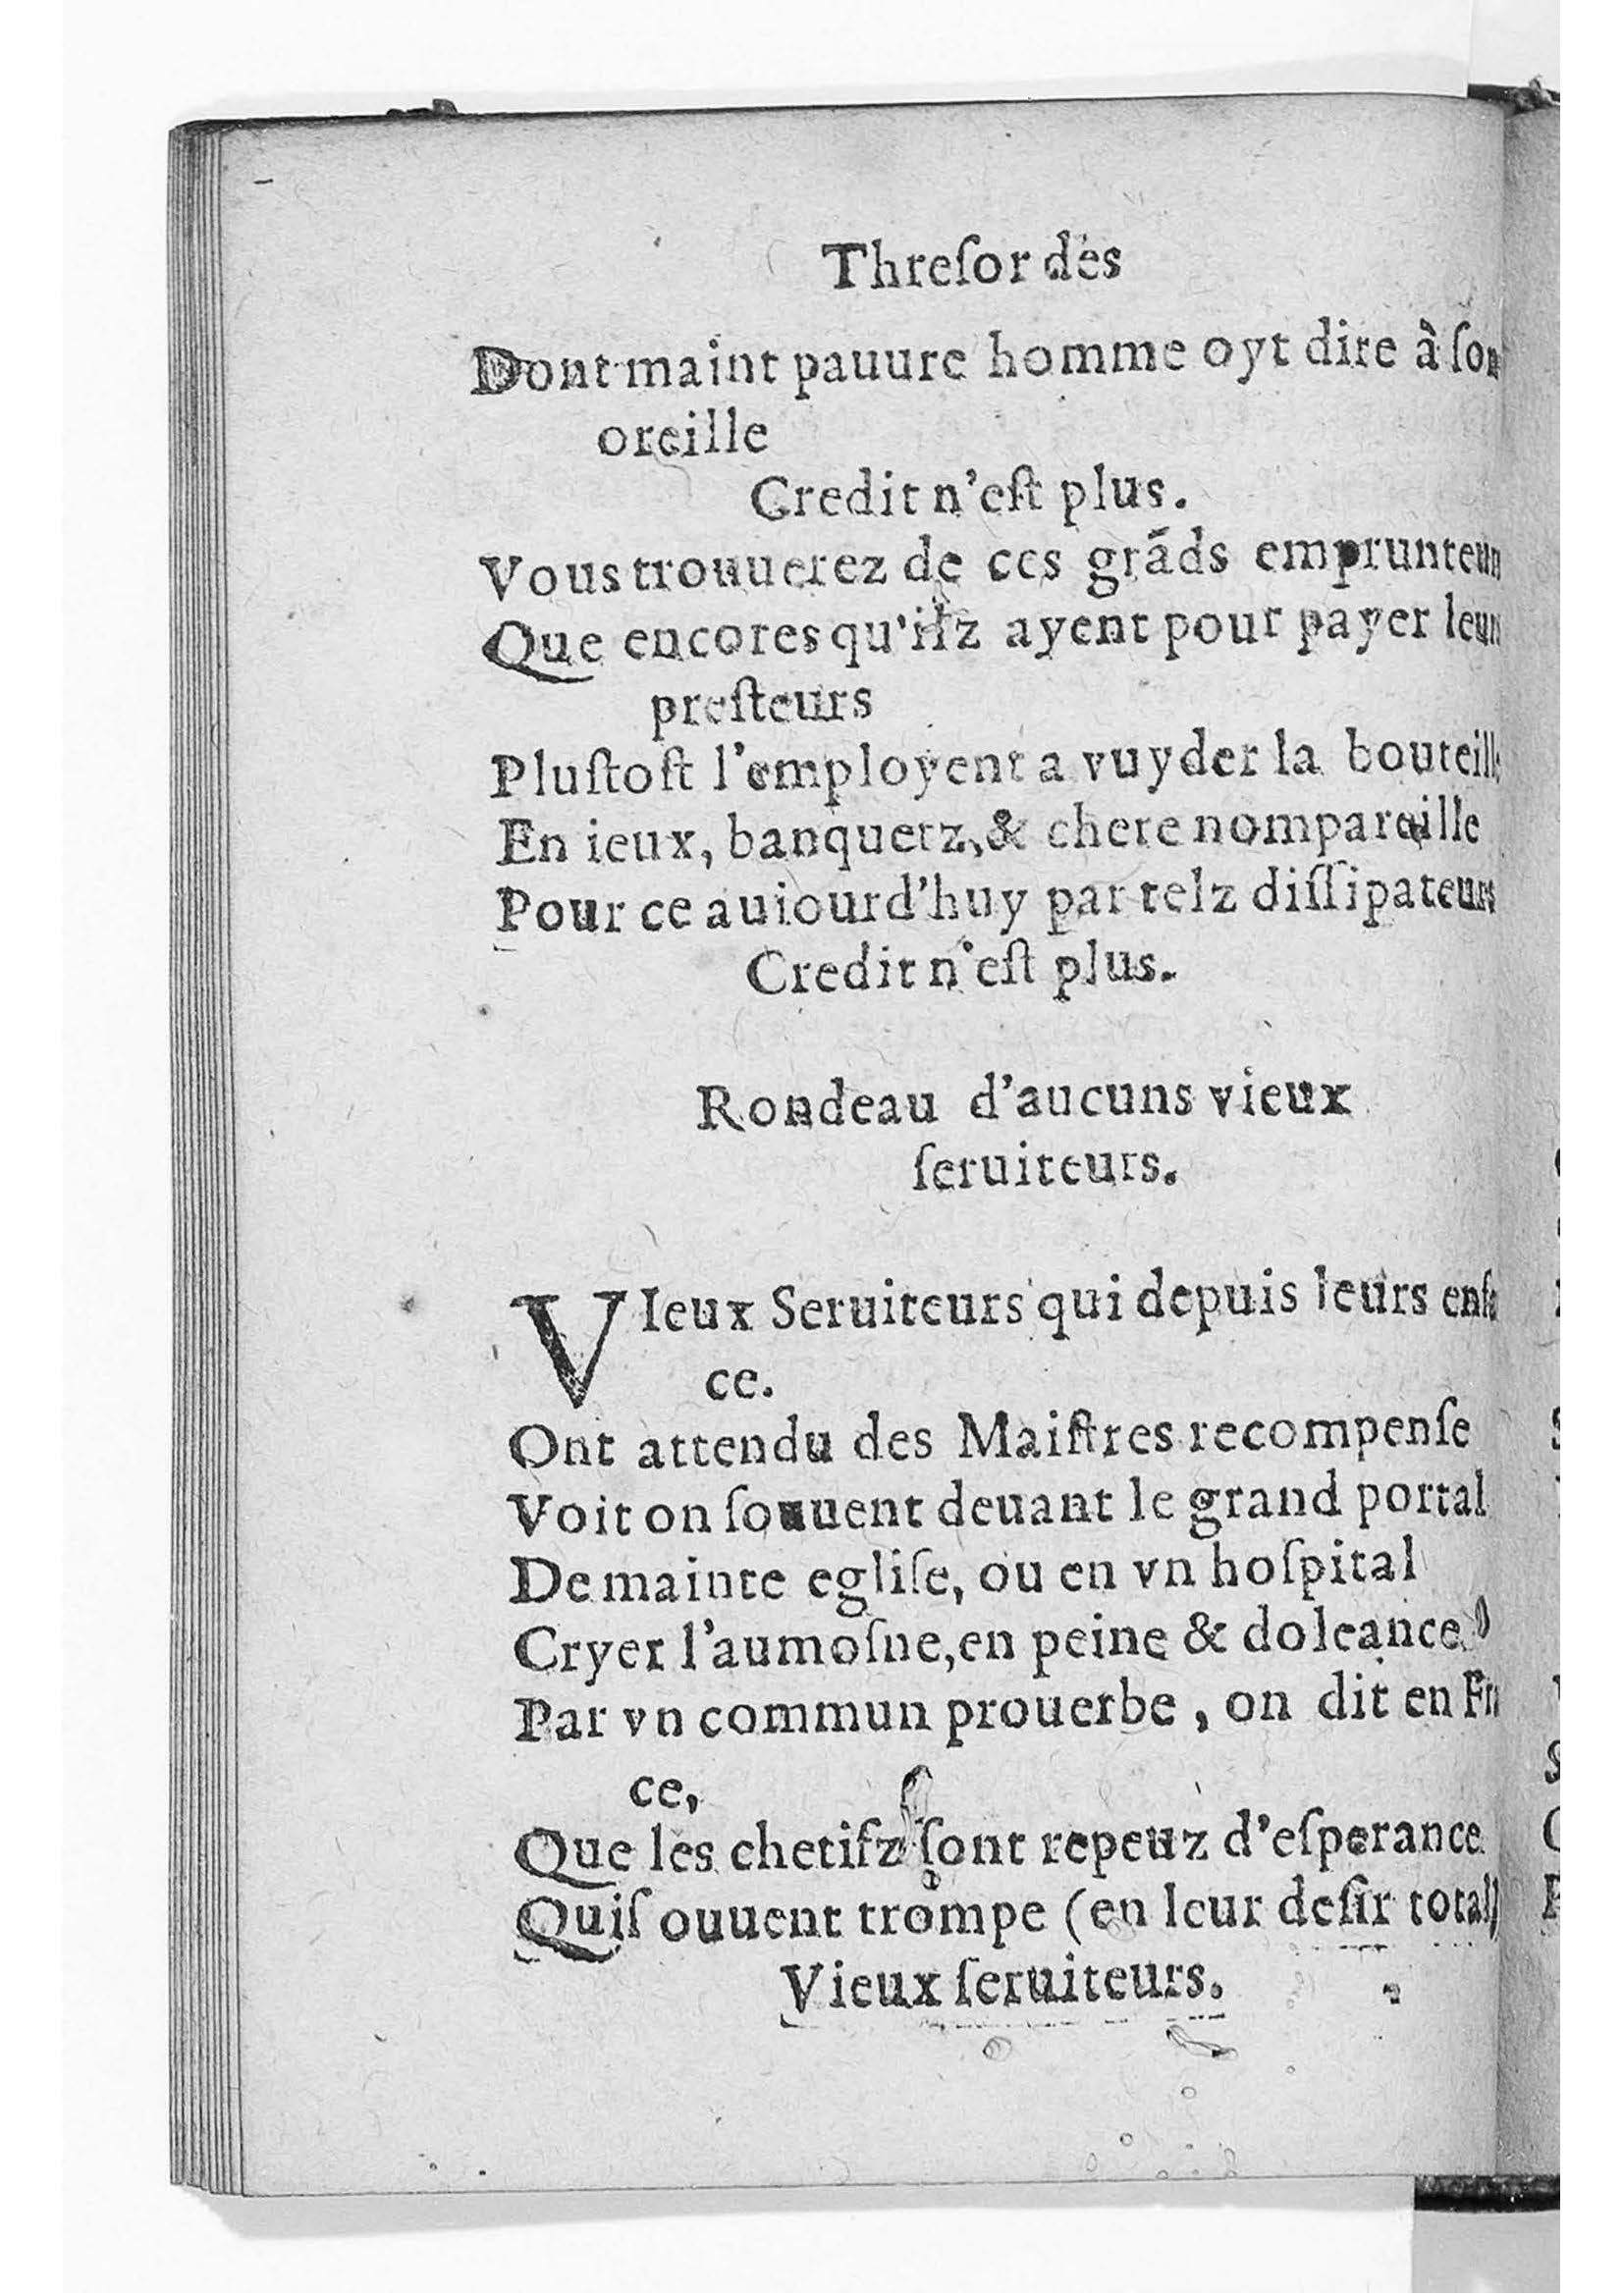 Threſor des
Dont maint pauure homme oyt dire à ſon
oreille
Credit n'eſt plus.
Vous trouuerez de ces grãds emprunteurs
Que encores qu'ilz ayent pour payer leurs
preſteurs
Pluſtoſt l'employent a vuyder la bouteille
En ieux, banquetz, & chere nompareille
Pour ce auiourd'huy par telz diſſipateurs
Credit n'eſt plus.
Rondeau d'aucuns vieux
ſeruiteurs.
VIeux Seruiteurs qui depuis leurs
ce.
Ont attendu des Maiſtres recompenſe
Voit on ſouuent deuant le grand portal
De mainte egliſe, ou en vn hoſpital
Cryer l'aumoſne, en peine & doleance
Par vn commun prouerbe, on dit en
ce,
Que les chetifz ſont repeuz d'eſperance
Quiſ ouuent trompe (en leur deſir total)
Vieux ſeruiteurs.